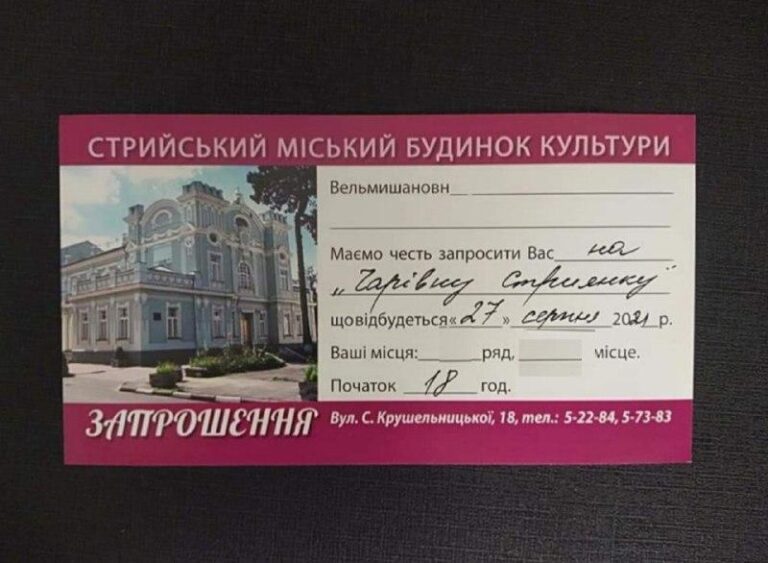 СТРИЙСЬКИЙ МІСЬКИЙ БУДИНОК КУЛЬТУРИ
Вельмишановн__ ____________________
____________________
Маємо честь запросити Вас на
„Чарівну Стриянку"
що відбудеться «27» серпня 2021 р.
Ваші місця:______ ряд, ______ місце.
Початок 18 год.
ЗАПРОШЕННЯ
Вул. С. Крушельницької, 18, тел.: 5-22-84, 5-73-83